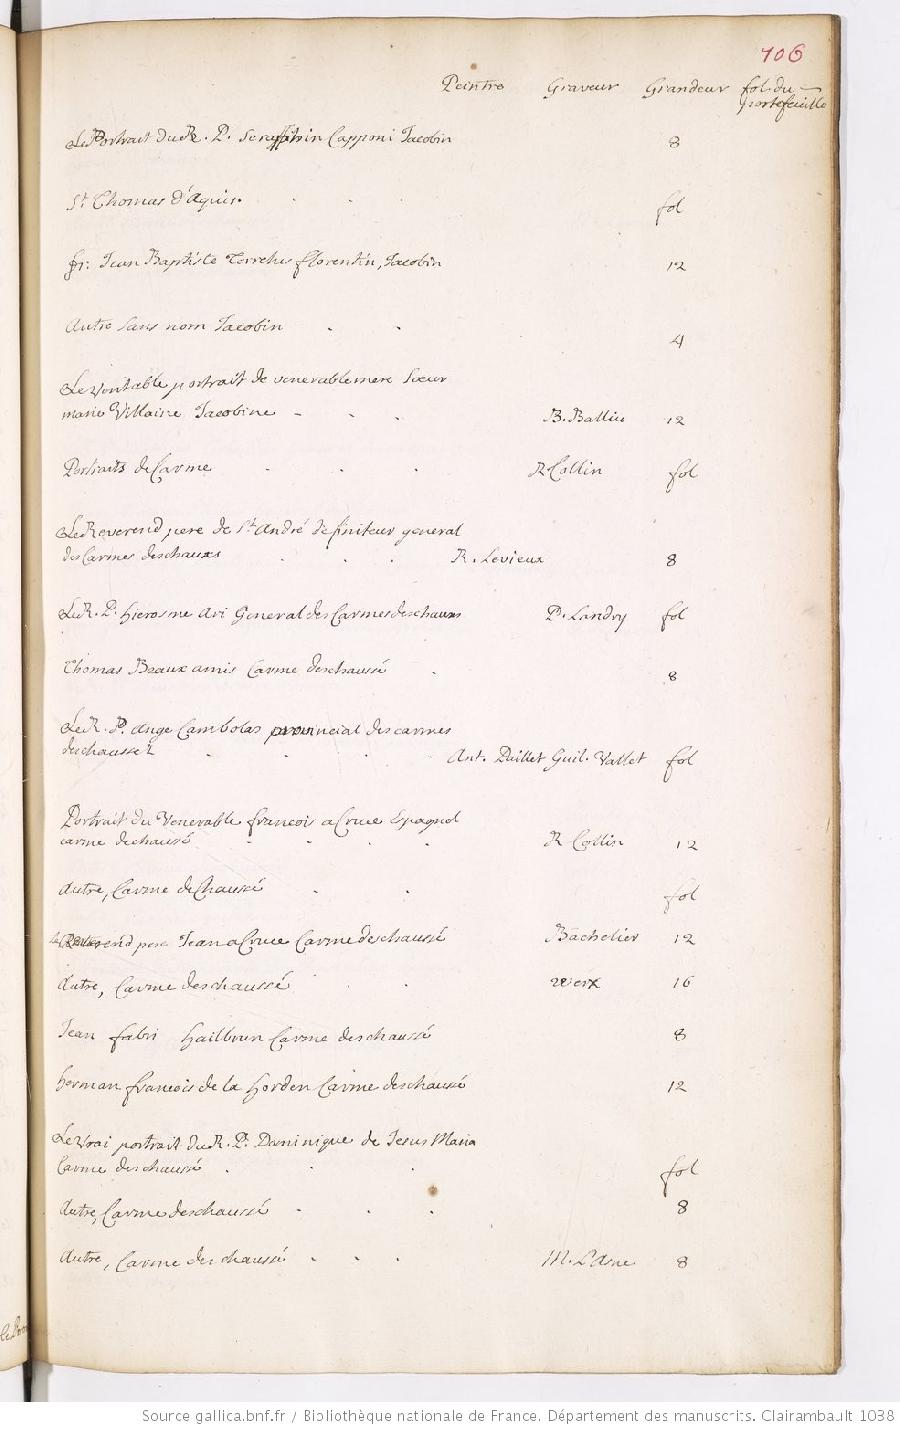 106
Peintre Graveur Grandeur fol. du
portefeuille
Le Portrait du R. P. Seraphin Capponi Jacobin 8
St. Thomas d'Aquin. fol
fr: Jean Baptiste florentin, Jacobin 12
Autre sans nom Jacobin 4
Le veritable portrait de venerable mere Soeur
marie Villaine Jacobine B. Balliu 12
Portraits de Carme R Collin fol
Le Reverend pere de St. André definiteur general
des Carmes deschauxs R. Levieux 8
Le R. P. hierosme Ari General des Carmes deschauxs P. Landry fol
Thomas Beaux amis Carme deschaussé 8
Le R. P. Ange Cambolas provincial des carmes
deschaussez Ant. Paillet Guil. Vallet fol
Portrait du Venerable francois a Cruce Espagnol
carme dechaussé R Collin 12
Autre, Carme deChaussé fol
le Reverend pere Jean a Cruce Carme deschaussé Bachelier 12
Autre, Carme deschaussé werx 16
Jean fabri hailbrun Carme deschaussé 8
herman francois de la horden Carme deschaussé 12
Le vrai portrait du R. P. Dominique de Jesus Maria
Carme deschaussé fol
Autre, Carme deschaussé 8
Autre, Carme deschaussé M. L'Asne 8
Source gallica.bnf.fr / Bibliothèque nationale de France. Département des manuscrits. Clairambault 1038